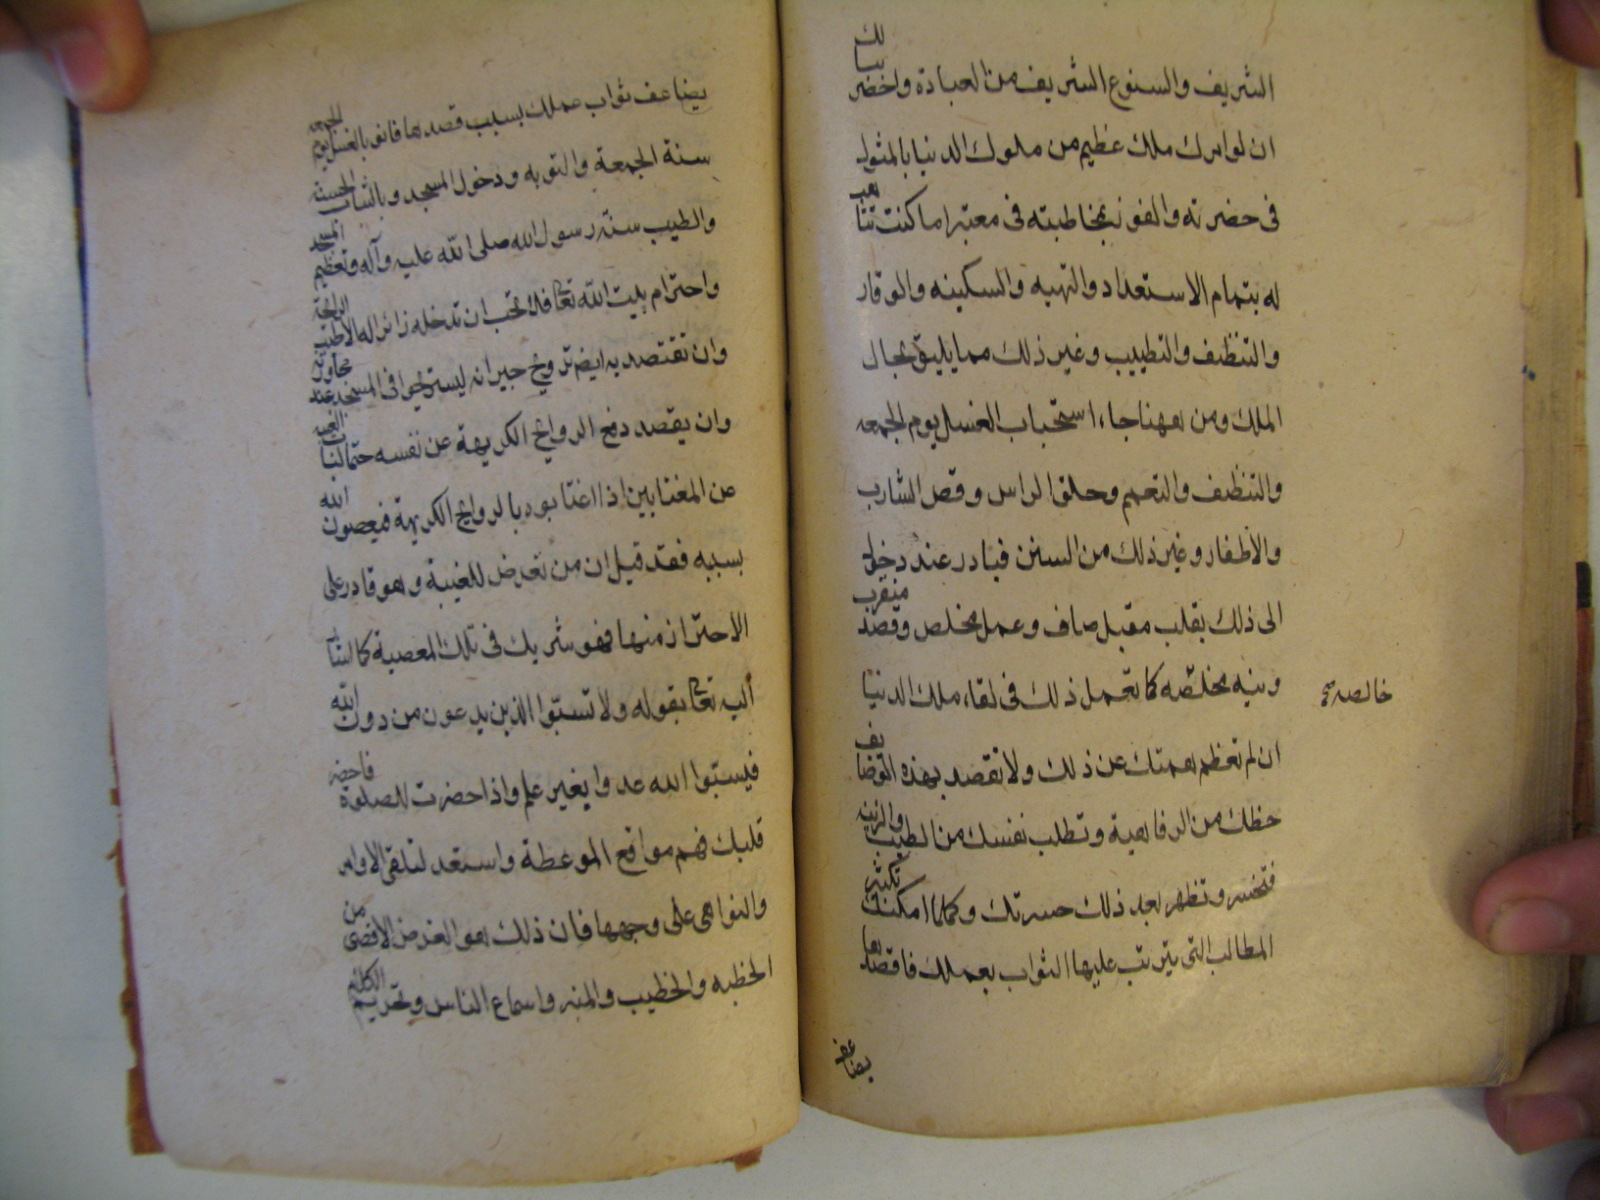 الشريف والسنوع الشريف من العبادة واحضر ببالك
ان لو امرك ملك عظيم من ملوك الدنيا بالمثول
فى حضرته والفوز بمخاطبته فى معتبر اما كنت تتاهب
له بتمام الاستعداد والتهيه والسكينه والوقار
والتنظيف والتطييب وغير ذلك مما يليق بحال
الملك ومن ههنا جاء استحباب الغسل يوم الجمعه
والتنظيف والتعمم وحلق الراس وقص الشارب
والاظفار وغير ذلك من السنن فبادر عند دخول
الى ذلك بقلب مقبل صاف وعمل مخلص وقصد متقرب
ونيه مخلصه كما تعمل ذلك فى لقاء ملك الدنيا
خالصه صح
ان لم تعظم همتك عن ذلك ولا تقصد بهذه الوضايف
حظك من الرفاهية وتطلب نفسك من الطيب والزينه
فتخسر وتظهر بعد ذلك حسرتك وكلما امكنك تكثير
المطالب التى يترتب عليها الثواب بعملك فاقصدها
يضاعف
يضاعف ثواب عملك بسبب قصدها فانو بالغسل يوم الجمعه
سنة الجمعة والتوبه ودخول المسجد وبالثياب الحسنه
والطيب سنة رسول الله صلى الله عليه وآله وتعظيم المسجد
واحترام بيت الله تعالى فلا تحب ان تدخله زائرا له الا طيب الرائحة
وان تقصد به ايضا ترويح جيرانه ليستريحوا فى المسجد عند مجاورته
وان يقصد دفع الروايح الكريهة عن نفسه حتما لباب الغيبه
عن المغتابين اذا اغتابوه بالروايح الكريهة فيعصون الله
بسببه فقد قيل ان من تعرض للغيبة وهو قادر على
الاحتراز منها فهو شريك فى تلك المعصية كما اشار
اليه تعالى بقوله ولا تسبّوا الذين يدعون من دون الله
فيسبّوا الله عدوا بغير علم واذا حضرت للصلوة فاحضر
قلبك فهم مواقع الموعظة واستعد لتلقى الاوامر
والنواهى على وجهها فان ذلك هو الغرض الاقصى من
الخطبه والخطيب والمنبر واسماع الناس وتحريم الكلام